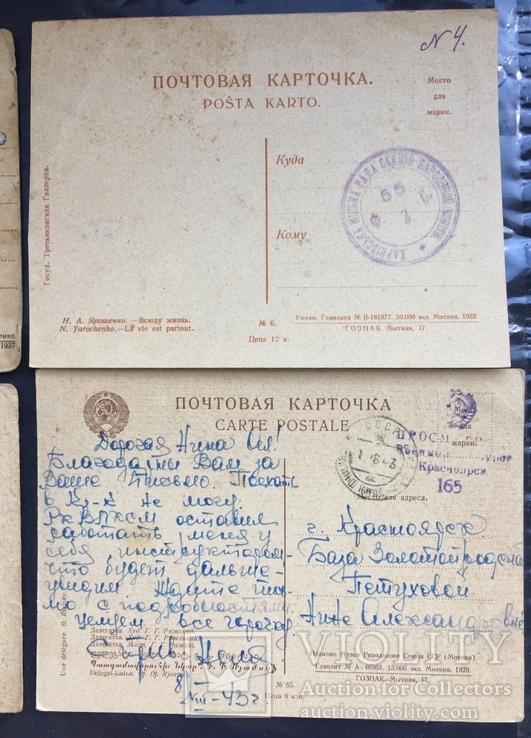 N 4.
ПОЧТОВАЯ КАРТОЧКА.
POŜTA KARTO.
Место
для
марки.
Куда
Кому
Госуд. Третьяковская Галлерея.
Н. А. Ярошенко.—Всюду жизнь.
N. Yarochenko.—La vie est partout.
№ 6.
Цена 12 к.
Уполн. Главлита № В-181977. 50.000 экз. Москва, 1932.
ГОЗНАК. Мытная, 17.
1937
ПОЧТОВАЯ КАРТОЧКА
CARTE POSTALE
для
марки:
СССР
ПРОСМОТРЕНО
Военной Цензурой
Красноярск
165
адреса.
Дорогая Нина
Благодарим Вам за
Ваше письмо. Поехать
в не могу.
РК ВЛКСМ оставил
работать меня у
себя инструктором
что будет дальше
увидим Ждите письмо
с подробностями
целуем все горячо
8/VIII-43 г
г. Красноярск
База Золотопродсна
Петуховой
Нине Александровне
Une déléguée.
Делегатка. Худ. Г. Г. Ряжский.
№ 85.
Цена 8 коп.
Издание Музея Революции Союза ССР (Москва).
Главлит № А- 40363. 15.000 экз. Москва, 1929.
ГОЗНАК. Мытная, 17.
VIOLITY
Auction for Collectors
auction.violity.com